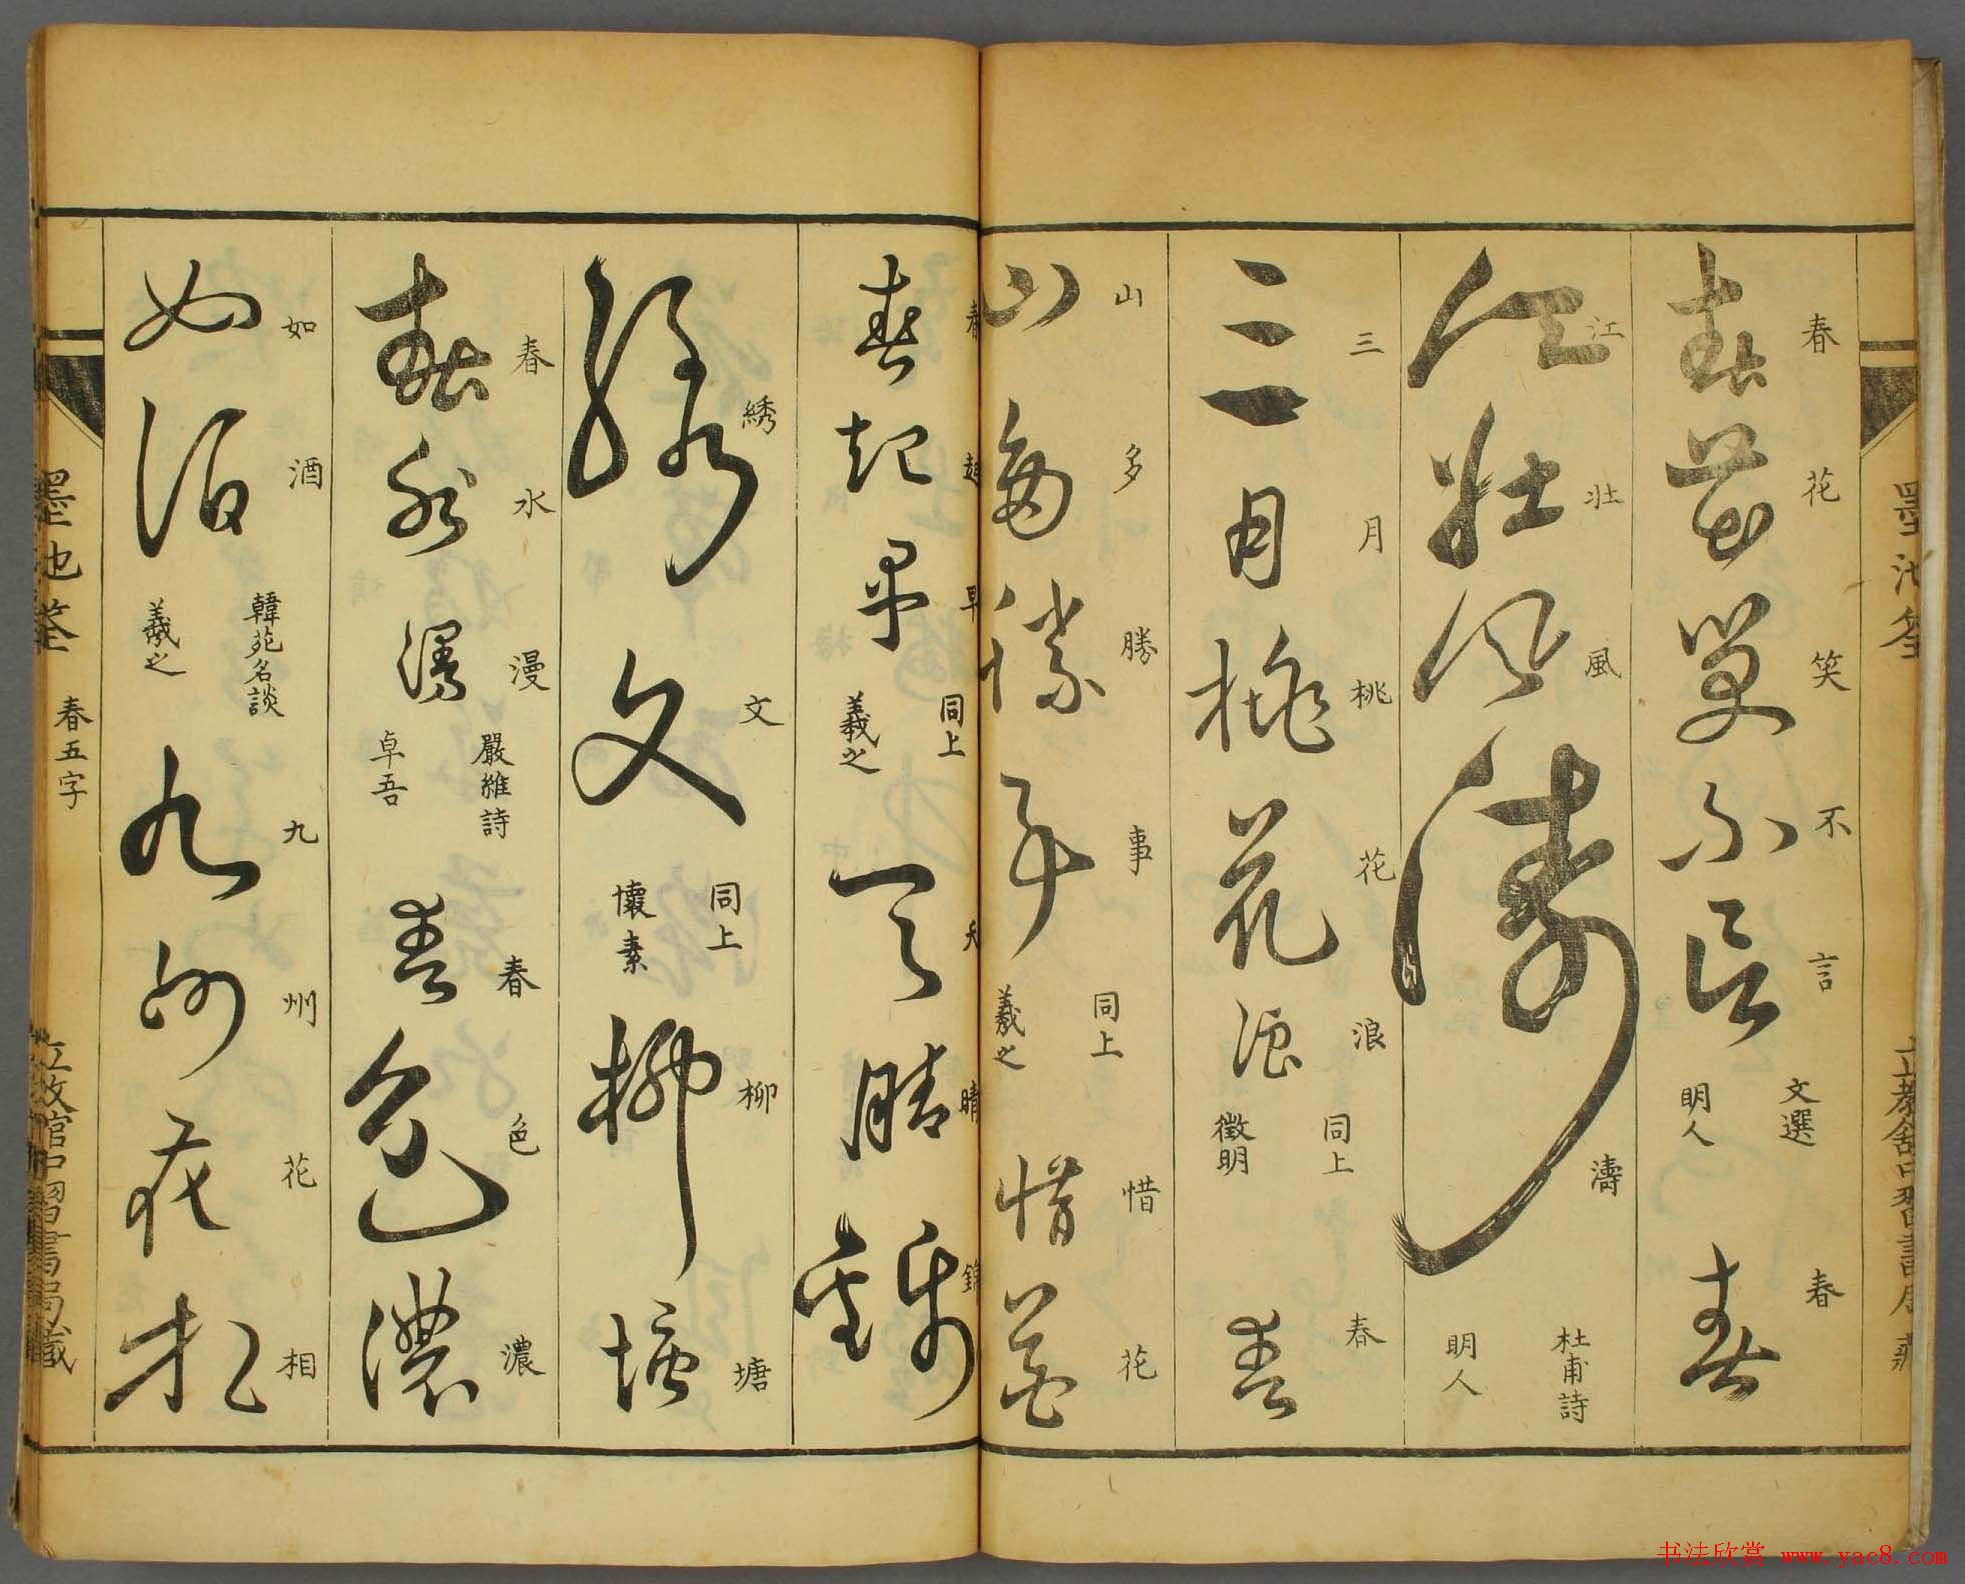 墨池筌
立教舘中習書局藏
春花笑不言 文選 明人 春
江壯風濤 杜甫詩 明人
三月桃花浪 同上 徵明 春
山多勝事 同上 羲之 惜花
春起早 同上 羲之 天晴錦
綉文 同上 懷素 柳塘
春水漫 嚴維詩 卓吾 春色濃
如酒 韓苑名談 羲之 九州花相
墨池筌 春五字 立教舘中習書局藏
书法欣赏 www.yac8.com